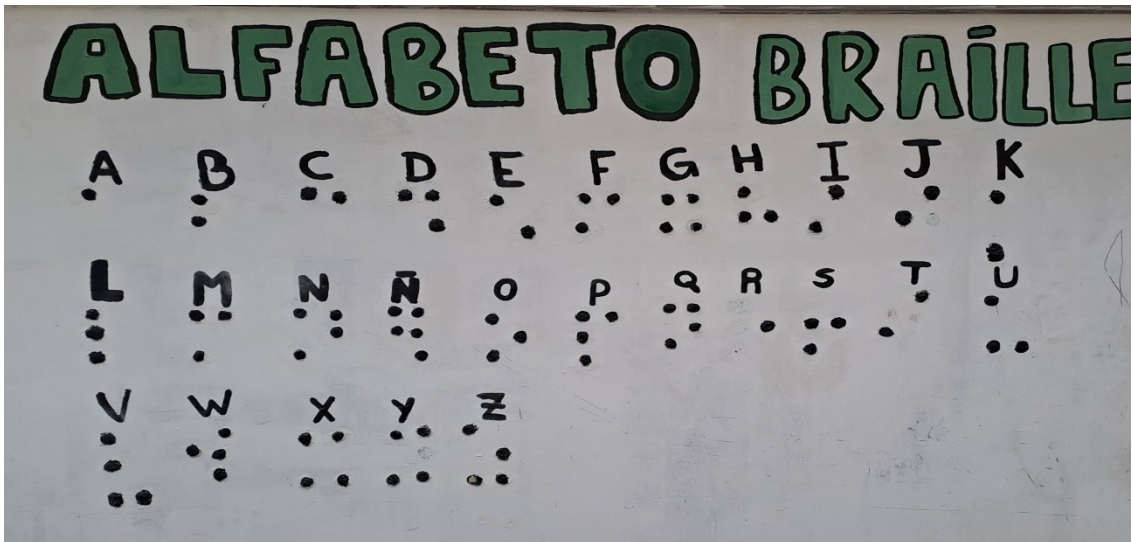 ALFABETO BRAÍLLE
A B C D E F G H I J K
L M N Ñ O P Q R S T U
V W X Y Z